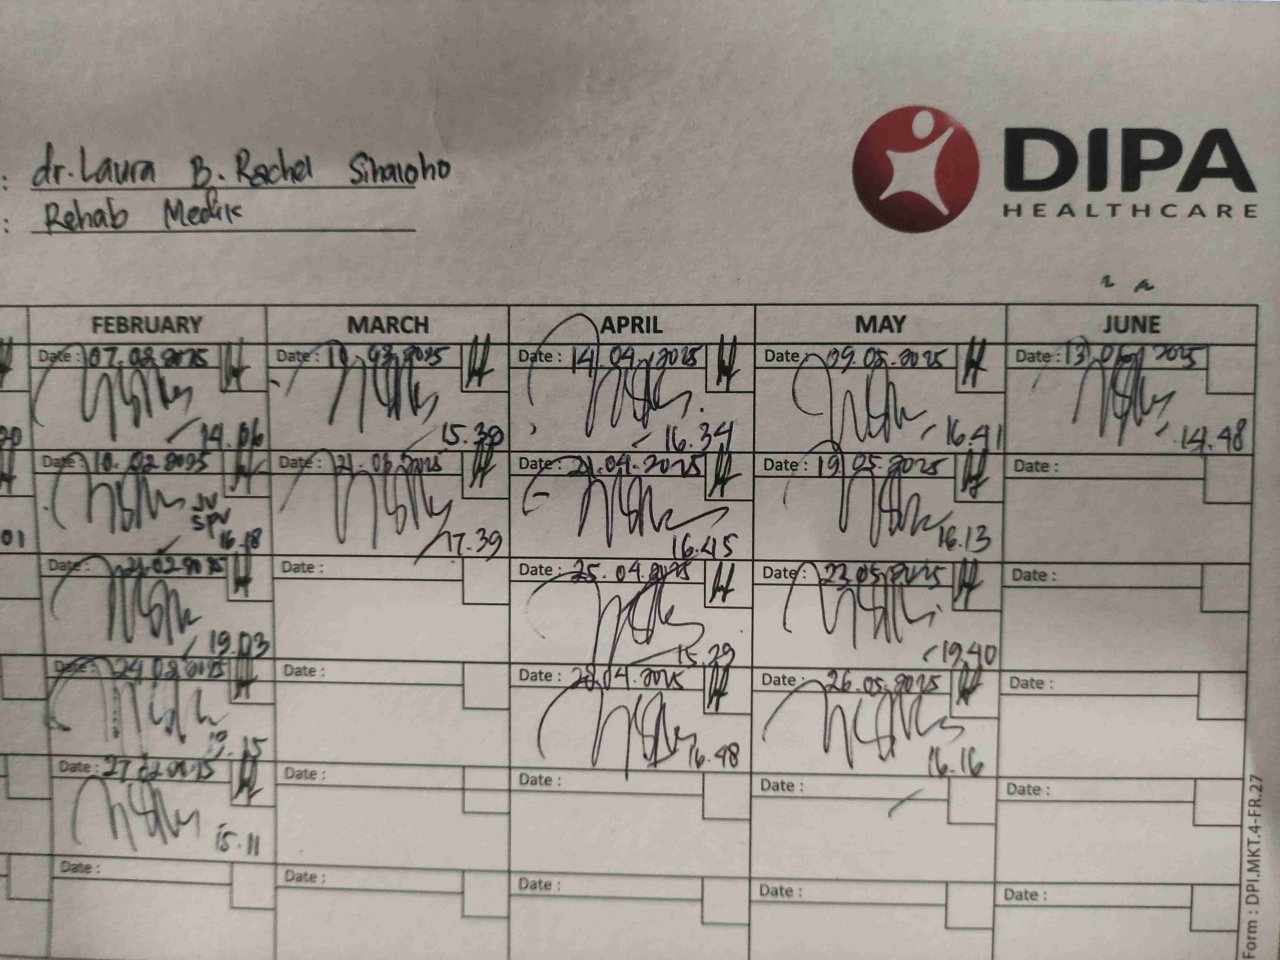 : dr. Laura B. Rachel Sihaloho
: Rehab Medik
DIPA
HEALTHCARE
FEBRUARY MARCH APRIL MAY JUNE
Date : 07.02.2025 Date : Date : 14.04.2025 Date : 09.05.2025 Date : 13.06.2025
14.06 15.30 16.34 16.41 14.48
Date : 10.02.2025 Date : 21.03.2025 Date : 21.04.2025 Date : 19.05.2025 Date :
SPV
01 16.18 17.39 16.45 16.13
Date : 21.02.2025 Date : Date : 25.04.2025 Date : 23.05.2025 Date :
19.03 15.29 19.40
Date : 24.02.2025 Date : Date : 28.04.2025 Date : 26.05.2025 Date :
15 16.48 16.16
Date : 27.02.2025 Date : Date : Date : Date :
15.11
Date : Date : Date : Date : Date :
Form : DPI.MKT.4-FR.27